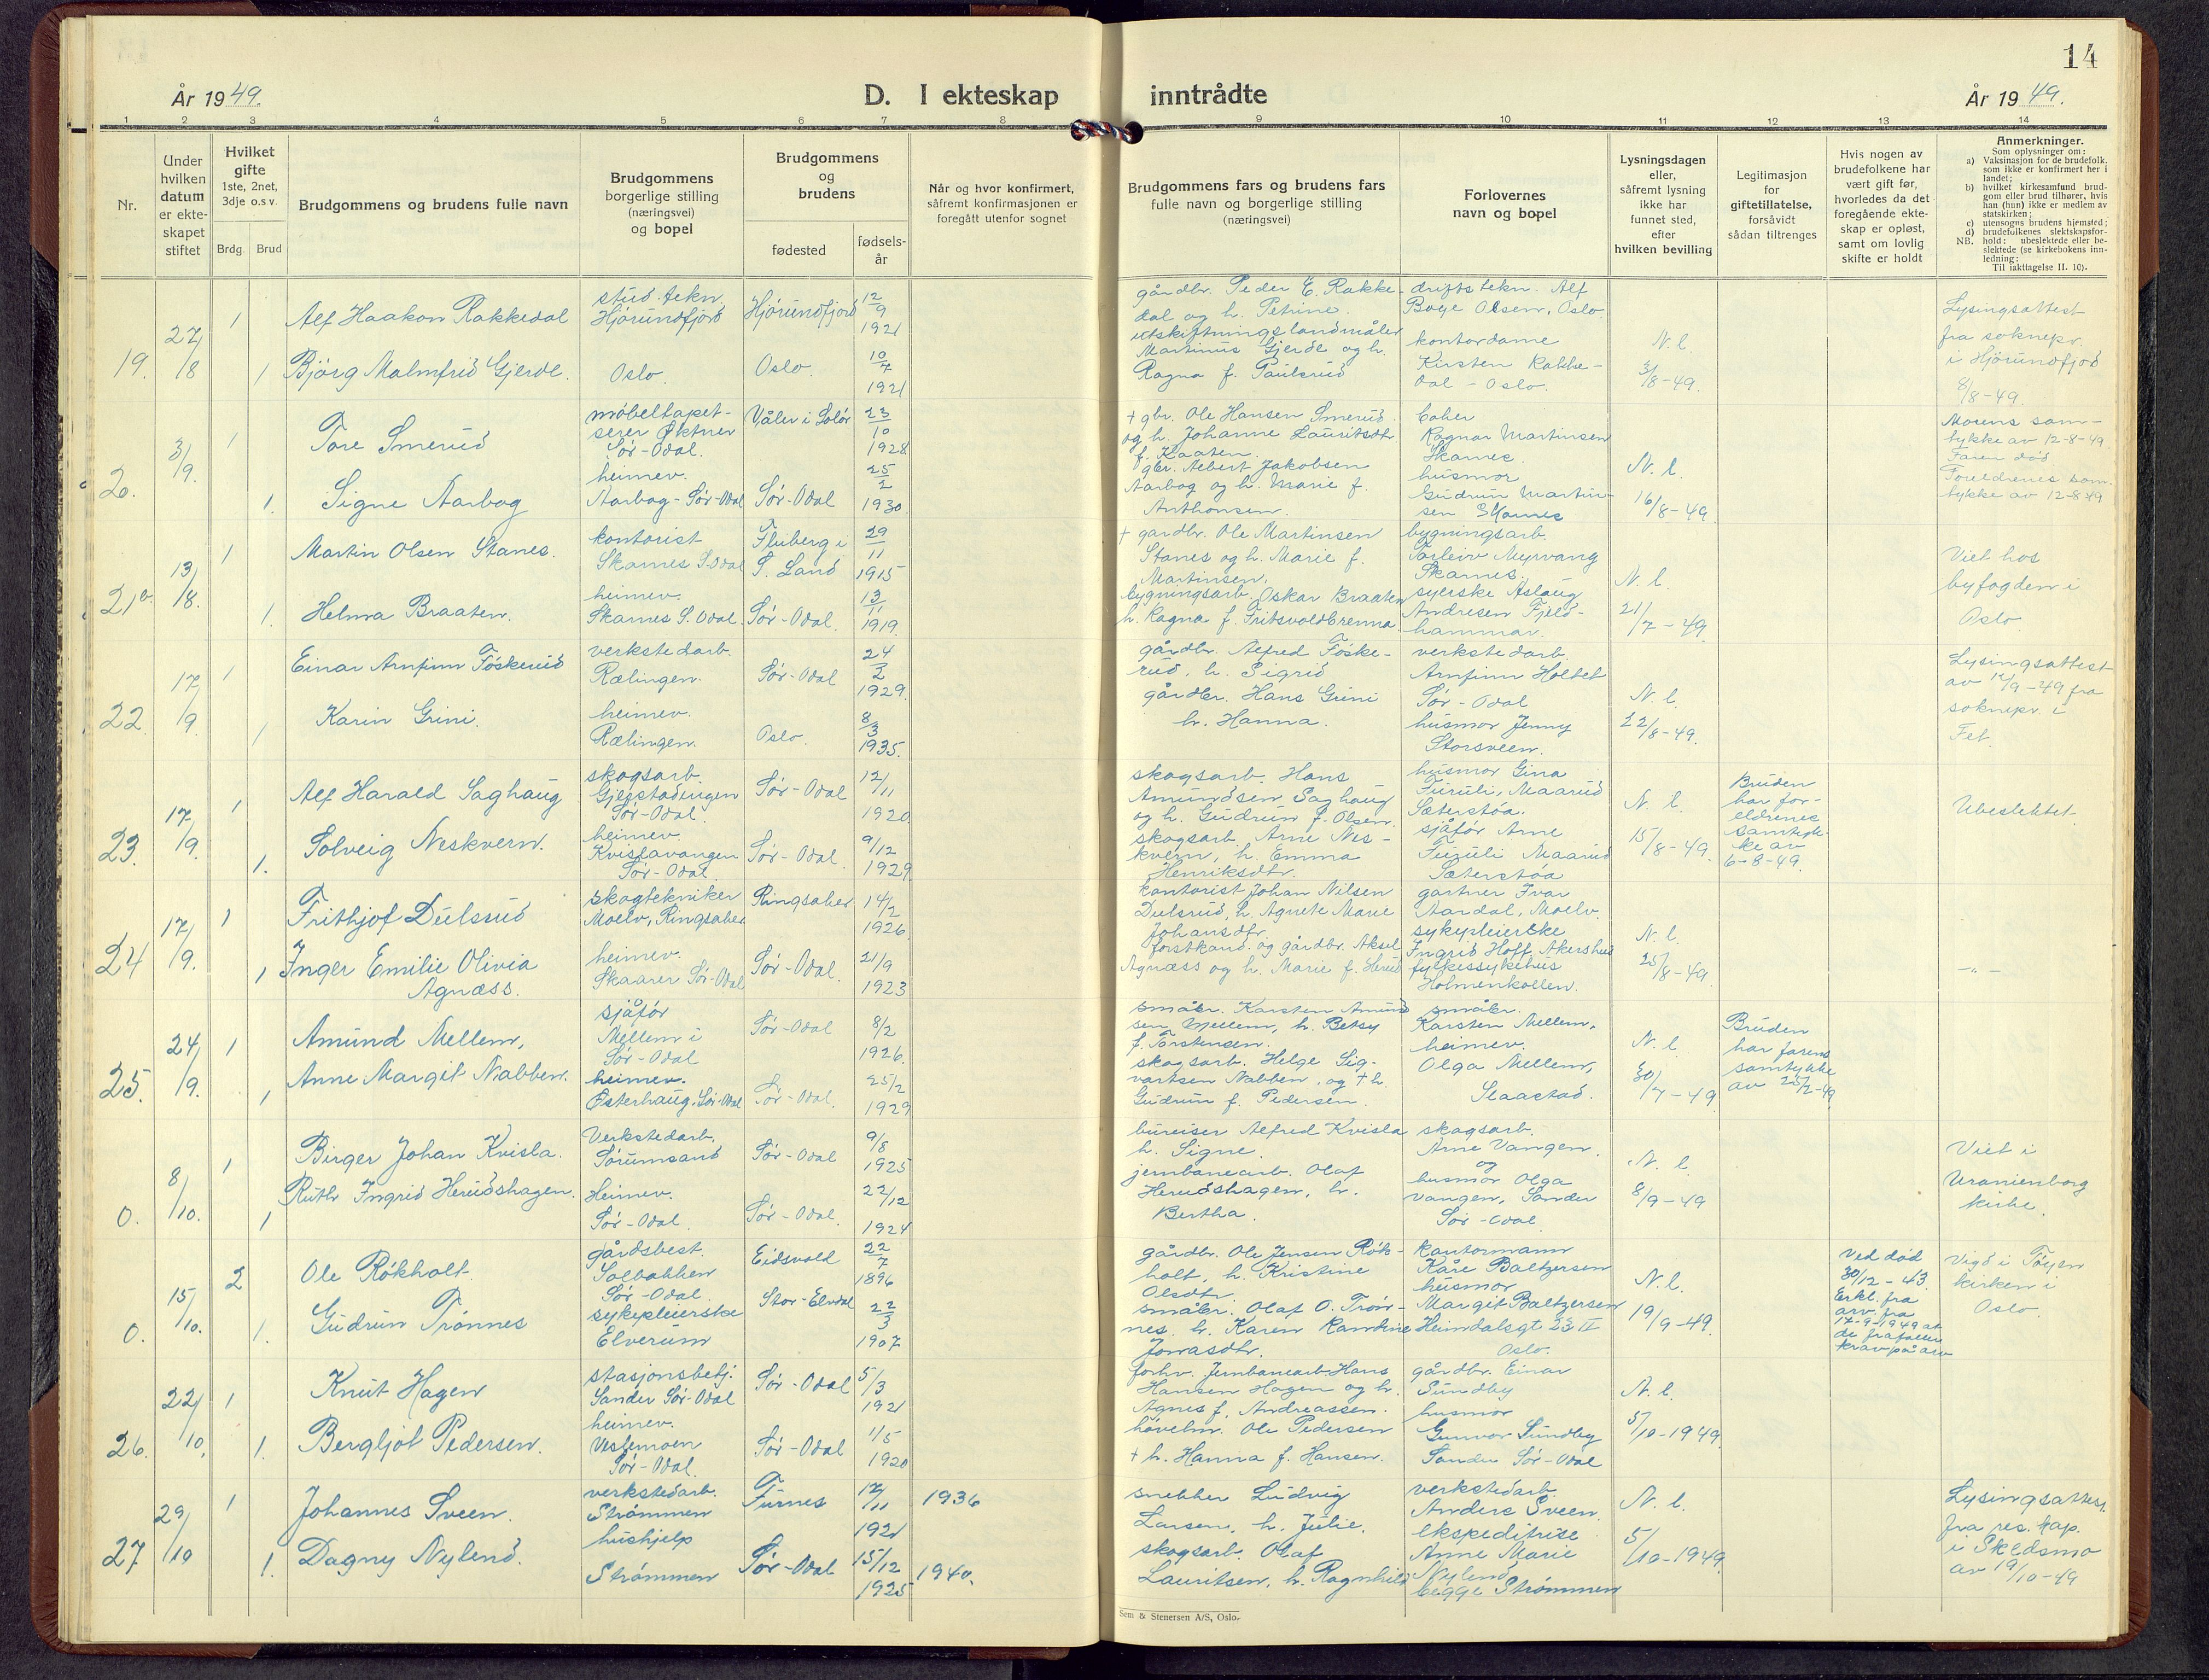 14
År 1949.
D. I ekteskap inntrådte
År 1949.
1 2 3 4 5 6 7 8 9 10 11 12 13 14
Nr.
Under hvilken datum er ekte-skapet stiftet
Hvilket gifte 1ste, 2net, 3dje o.s v.
Brdg. Brud
Brudgommens og brudens fulle navn
Brudgommens borgerlige stilling (næringsvei) og bopel
Brudgommens og brudens
fødested
fødsels-år
Når og hvor konfirmert, såfremt konfirmasjonen er foregått utenfor sognet
Brudgommens fars og brudens fars fulle navn og borgerlige stilling (næringsvei)
Forlovernes navn og bopel
Lysningsdagen eller, såfremt lysning ikke har funnet sted, efter hvilken bevilling
Legitimasjon for giftetillatelse, forsåvidt sådan tiltrenges
Hvis nogen av brudefolkene har vært gift før, hvorledes da det foregående ekte-skap er opløst, samt om lovlig skifte er holdt
Anmerkninger.
Som oplysninger om:
a) Vaksinasjon for de brudefolk. som ikke er konfirmert her i landet;
b) hvilket kirkesamfund brud-gom eller brud tilhører, hvis han (hun) ikke er medlem av statskirken;
c) utensogns brudens hjemsted;
d) brudefolkenes slektskapsfor-hold: ubeslektede eller be-slektede (se kirkebokens inn-ledning:
NB.
Til iakttagelse II. 10).
19. 27/8 1 Alf Haakon Rakkedal
stud. tekn. Hjørundfjord
Hjørundfjord 12/9 1921
gårdbr. Peder E. Rakke-dal og h. Petrine.
driftstekn. Alf Boye Olsen, Oslo.
1 Bjørg Malmfrid Gjerde.
Oslo. Oslo. 10/7 1921
utskiftningslandmåler Martinus Gjerde og h. Ragna f. Paulsrud
kontordame Kirsten Rakke-dal - Oslo.
N. l. 3/8-49.
Lysingsattest fra soknepr. i Hjørundfjord 8/8-49.
20. 3/9. 1 Tore Smerud
møbeltapet-serer Øktner Sør-Odal.
Våler i Solør 23/10 1928
+ gbr. Ole Hansen Smerud og h. Johanne Lauritsdtr. f. Kaaten.
Ragnar Martinsen Skarnes
1. Signe Aarbog
heimev. Aarbog - Sør-Odal
Sør-Odal 25/2 1930.
gbr. Albert Jakobsen Aarbog og h. Marie f. Anthonsen.
husmor Gudrun Martin-sen Skarnes
N. l. 16/8-49.
Morens sam-tykke av 12-8-49 Faren død
Foreldrenes sam-tykke av 12-8-49
21 13/8. 1 Martin Olsen Stanes.
kontorist Skarnes S. Odal
Fluberg i S. Land 29/11 1915
+ gardbr. Ole Martinsen Stanes og h. Marie f. Martinsen.
bygningsarb. Torleiv Myrvang Skarnes.
1. Helma Braaten.
heimev. Skarnes S. Odal.
Sør-Odal. 13/11 1919.
bygningsarb. Oskar Braaten h. Ragna f. Fritsvoldbrenna
syerske Aslaug Andresen Fjeld-hammar.
N. l. 21/7-49.
Viet hos byfogden i Oslo.
22. 17/9. 1 Einar Arnfinn Føskerud
verkstedarb. Rælingen.
Sør-Odal 24/2 1929.
gårdbr. Alfred Føske-rud, h. Sigrid
verkstedarb Arnfinn Holtet Sør-Odal
1 Karin Grini.
heimev. Rælingen.
Oslo. 8/3 1935.
gårdbr. Hans Grini h. Hanna.
husmor Jenny Storsveen.
N. l. 22/8-49.
Lysingsattest av 12/9-49 fra soknepr. i Fet.
23. 17/9. 1 Alf Harald Saghaug
skogsarb. Gjerstadengen Sør-Odal.
Sør-Odal 12/11 1920
skogsarb. Hans Amundsen Saghaug og h. Gudrun f. Olsen.
husmor Gina Furuli, Maarud Sæterstøa.
1. Solveig Neskvern.
heimev. Kvislavangen Sør-Odal.
Sør-Odal. 9/12 1929
skogsarb. Arne Nes-kvern, h. Emma Henriksdtr.
sjåfør Arne Furuli Maarud Sæterstøa
N. l. 15/8-49.
Bruden har for-eldrenes samtyk-ke av 6-8-49.
Ubeslektet.
24 17/9. 1 Frithjof Dulsrud
skogtekniker Moelv, Ringsaker
Ringsaker 14/2 1926.
kontorist Johan Nilsen Dulsrud, h. Agnete Marie Johansdtr.
gartner Ivar Aardal, Moelv.
1 Inger Emilie Olivia Agnæss.
heimev. Skaarer Sør-Odal
Sør-Odal. 21/9 1923
forstkand. og gårdbr. Aksel Agnæss og h. Marie f. Herud
sykepleierske Ingrid Hoff, Akershus fylkessykehus Holmenkollen.
N. l. 25/8-49.
-"-
25. 24/9. 1 Amund Mellem,
sjåfør Mellem i Sør-Odal
Sør-Odal 8/2 1926.
småbr. Karsten Amund-sen Mellem, h. Betsy f. Torstensen.
småbr. Karsten Mellem.
1 Anne Margit Nabben.
heimev. Østerhaug. Sør-Odal
Sør-Odal. 25/2 1929
skogsarb. Helge Sig-vartsen Nabben, og + h. Gudrun f. Pedersen.
heimev. Olga Mellem, Slaastad.
N. l. 30/7-49
Bruden har farens samtykke av 25/7-49.
0. 8/10. 1 Birger Johan Kvisla.
Verkstedarb. Sørumsand
Sør-Odal 9/8 1925
bureiser Alfred Kvisla h. Signe.
skogsarb. Arne Vangen. og
1 Ruth Ingrid Herudshagen.
Heimev. Sør-Odal.
Sør-Odal. 22/12 1924
jernbanearb. Olaf Herudshagen, h. Bertha.
husmor Olga Vangen, Sander Sør-Odal
N. l. 8/9-49
Viet i Uranienborg kirke.
0. 15/10. 2 Ole Røkholt.
gårdsbest. Solbakken Sør-Odal.
Eidsvold 22/7 1896
gårdbr. Ole Jensen Røk-holt, h. Kristine Olsdtr.
kontormann Kåre Baltzersen
1. Gudrun Trønnes
sykepleierske Elverum
Stor-Elvdal 22/3 1907
småbr. Olaf O. Trøn-nes, h. Karen Randine Jonasdtr.
husmor Margit Baltzersen Heimdalsgt 23 II Oslo.
N. l. 19/9-49.
Ved død 30/12-43. Erkl. fra arv. fra 17-9-1949 at de frafaller krav på arv
Vigd i Tøyen kirken i Oslo.
26. 22/10. 1 Knut Hagen
stasjonsbetj. Sander Sør-Odal
Sør-Odal 5/3 1921
forhv. Jernbanearb. Hans Hansen Hagen og h. Agnes f. Andreassen.
gårdbr. Einar Sundby
1. Bergljot Pedersen.
heimev. Vestmoen Sør-Odal.
Sør-Odal 1/5 1920
høvelm. Ole Pedersen + h. Hanna f. Hansen.
husmor Gunvor Sundby Sander Sør-Odal
N. l. 5/10-1949.
27 29/10 1 Johannes Sveen.
verkstedarb. Strømmen
Furnes 12/11 1921 1936
snekker Ludvig Larsen, h. Julie.
verkstedarb. Anders Sveen.
1. Dagny Nylend.
hushjelp Strømmen
Sør-Odal 15/12 1925 1940.
skogsarb. Olaf Lauritsen, h. Ragnhild
ekspeditrise Anne Marie Nylend begge Strømmen
N. l. 5/10-1949.
Lysingsattest. fra res. kap. i Skedsmo av 19/10-49
Sem & Stenersen A/S, Oslo.